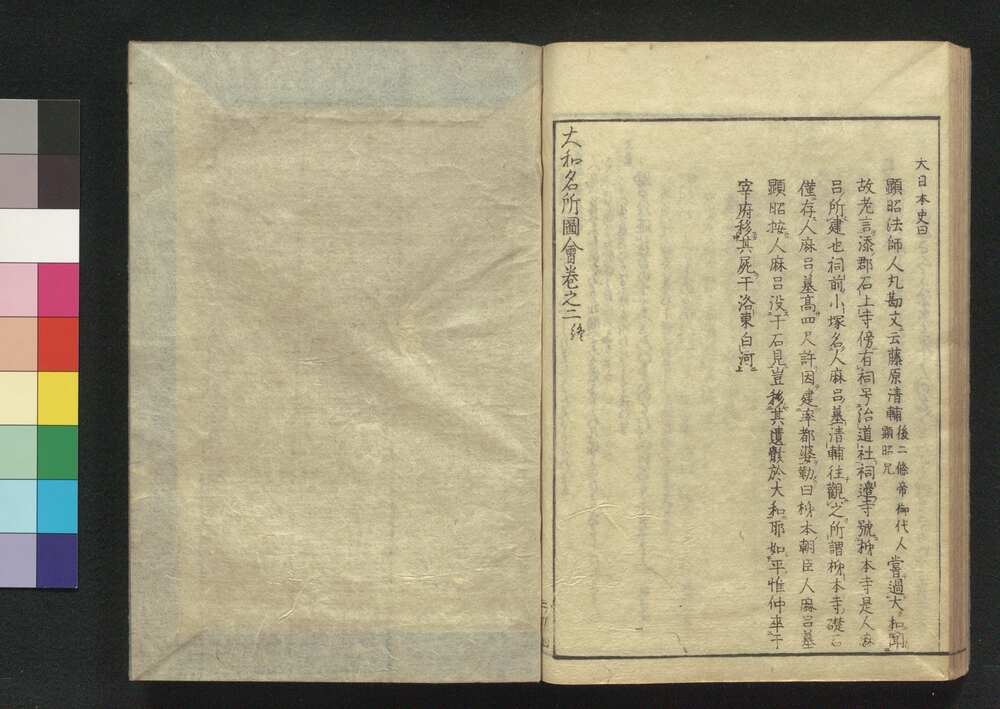 大日本史曰
顕昭法師人丸勘文云藤原清輔後二條帝御代人顕昭兄嘗過大和聞
故老言添郡石上寺傍有祠号治道社祠邉寺號柿本寺是人麻
呂所建也祠前小塚名人麻呂墓清輔往觀之所謂柿本寺礎石
僅存人麻呂墓高四尺許因建率都婆勒曰柿本朝臣人麻呂墓
顕昭按人麻呂没于石見豈移其遺骸於大和耶如平惟仲卒于
宰府移其屍于洛東白河
大和名所圖會巻之二終